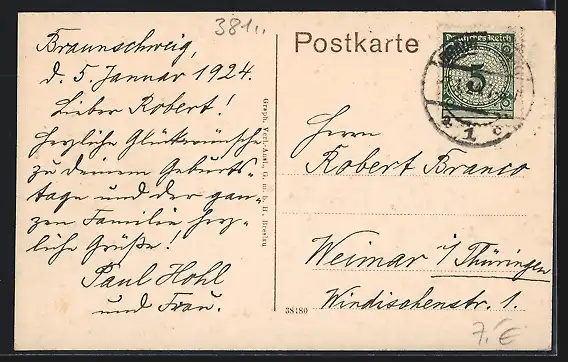 381..
Braunschweig,
d. 5. Januar 1924.
Lieber Robert!
Herzliche Glückwünsche
zu deinem Geburts-
tage und der gan-
zen Familie herz-
liche Grüße!
Paul Hohl
und Frau.
Graph. Verl.-Anst. G. m. b. H., Breslau
38480
Postkarte
Deutsches Reich
5
1 c
Herrn
Robert Branco
Weimar i/Thüringen
Windischenstr. 1.
7,-E